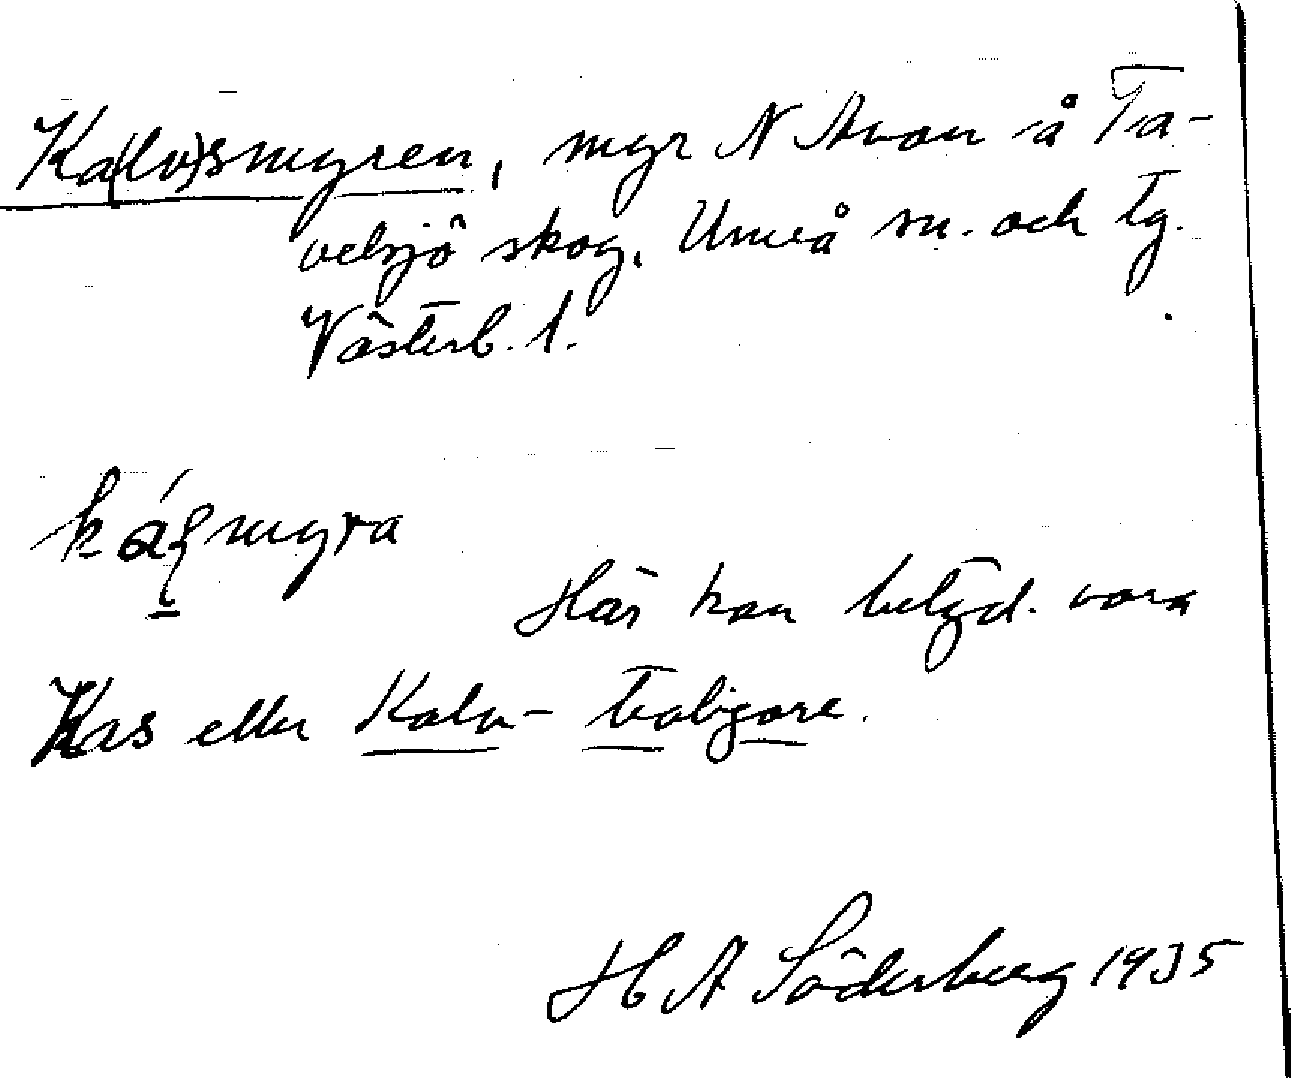 Ka(lv)smyren, myr N Avan å Ta-
velsjö skog, Umeå sn. och tg.
Västerb. l.
Här kan betyd. vara
Kas eller Kalv- troligare.
H A Söderberg 1935